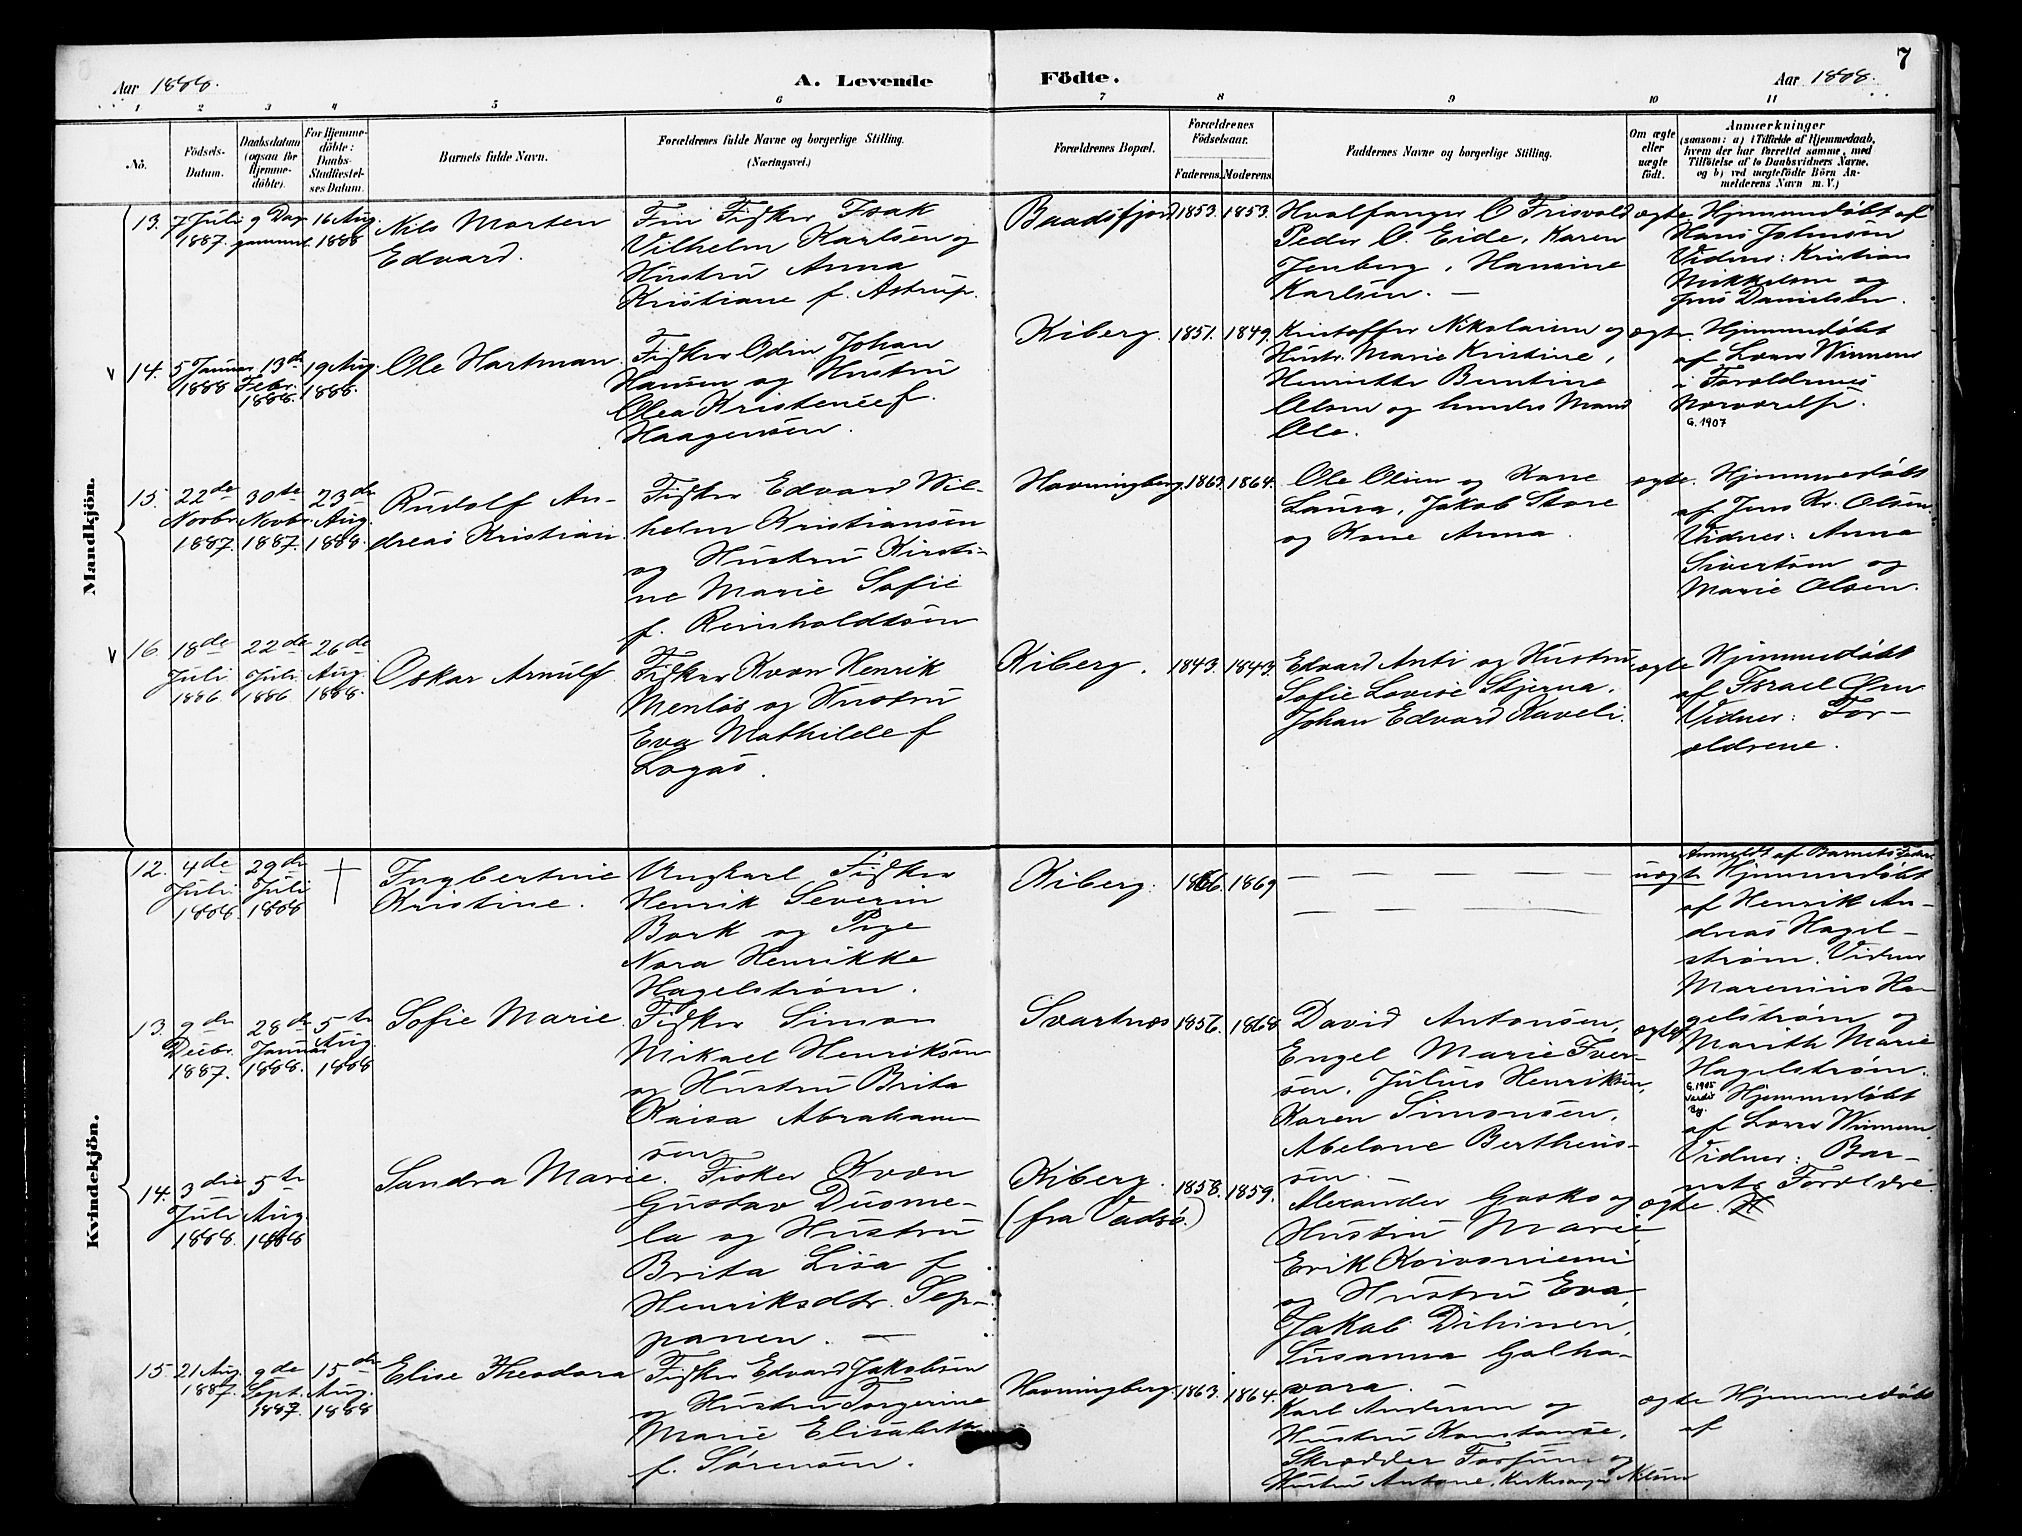 7
Aar 1888.
A. Levende
Födte.
Aar 1888.
1 2 3 4 5 6 7 8 9 10 11
No.
Födsels-
Datum.
Daabsdatum
(ogsaa for
Hjemme-
döbte).
For Hjemme-
döbte:
Daabs-
Stadfæstel-
ses Datum.
Barnets fulde Navn.
Forældrenes fulde Navne og borgerlige Stilling.
(Næringsvei.)
Forældrenes Bopæl.
Forældrenes
Födselsaar.
Faderens. Moderens.
Faddernes Navne og borgerlige Stilling.
Om ægte
eller
uægte
födt.
Anmærkninger
(saasom: a) i Tilfælde af Hjemmedaab,
hvem der har forrettet samme, med
Tilföielse af to Daabsvidners Navne,
og b) ved uægtefödte Börn An-
melderens Navn m. V.)
Mandkjön.
13.
7 Juli
1887.
9 Dag
gammel.
16 Aug.
1888
Nils Morten
Edvard.
Fin Fisker Isak
Vilhelm Karlsen og
Hustru Anna
Kristiane f. Astrup.
Baadsfjord
1853.
1853.
Hvalfanger O Frisvold
Peder O. Eide, Karen
Jenberg, Hansine
Karlsen. —
ægte.
Hjemmedøbt af
Hans Johnsen
Vidner: Kristian
Mikkelsen og
Jens Danielsen.
14.
5 Januar
1888
13de
Febr.
1888.
19 Aug.
1888.
Ole Hartman.
Fisker Odin Johan
Hansen og Hustru
Olea Kristense f.
Haagensen.
Kiberg.
1851.
1849.
Kristoffer Nikolaisen og
Hustr. Marie Kristine,
Henriette Bentine
Olsen og hendes Mand
Ole.
ægte.
Hjemmedøbt
af Lærer Winnem
i Forældrenes
Nærværelse.
G. 1907
15.
22de
Novbr.
1887.
30te
Novbr.
1887.
23de
Aug.
1888.
Rudolf An-
dreas Kristian.
Fisker Edvard Wil-
helm Kristiansen
og Hustru Kirsti-
ne Marie Sofie
f. Reinholdtsen
Havningberg.
1863.
1864.
Ole Olsen og Kone
Laura, Jakob Store
og Kone Anna.
ægte.
Hjemmedøbt
af Jens Kr. Olsen.
Vidner: Anna
Sivertsen og
Marie Olsen.
16.
18de
Juli
1886
22de
Juli
1886.
26de
Aug.
1888.
Oskar Arnulf
Fisker Kvæn Henrik
Menlös og Hustru
Eva Mathilde f
Logas.
Kiberg.
1843.
1843.
Edvard Anti og Hustru
Sofie Lovise Stjerna.
Johan Edvard Kaveli.
ægte
Hjemmedøbt
af Israel Ørn
Vidner: For-
ældrene.
Kvindekjön.
12.
4de
Juli
1888.
29de
Juli
1888
†
Ingbertine
Kristine.
Ungkarl Fisker
Henrik Severin
Bork og Pige
Nora Henrikke
Hagelstrøm.
Kiberg.
1866.
1869
— — — — —
— — — — —
uægte
Anmeldt af Barnets Fader
Hjemmedøbt
af Henrik An-
dreas Hagel-
strøm. Vidner
Marenius Ha-
gelstrøm og
Marith Marie
Hagelstrøm.
13.
9de
Decbr.
1887.
28de
Januar
1888.
5te
Aug.
1888
Sofie Marie.
Fisker Simon
Mikael Henriksen
og Hustru Brita
Kaisa Abraham-
sen
Svartnæs
1856.
1868
David Antonsen,
Engel Marie Iver-
sen, Julius Henriksen,
Karen Simonsen,
Abelone Bertheus-
sen. —
ægte
G. 1905
Vardø
By.
Hjemmedøbt
af Lærer Winnem.
Vidner: Bar-
nets Forældre.
14.
3die
Juli
1888.
5te
Aug.
1888
Sandra Marie.
Fisker Kvæn
Gustav Dusme-
la og Hustru
Brita Lisa f.
Henriksdtr. Sep-
panen. —
Kiberg.
(fra Vadsø.)
1858.
1859.
Alexander Gasko og
Hustru Marie,
Erik Koivoniemi
og Hustru Eva,
Jakob Dihinen,
Susanna Galha-
vara. —
ægte.
15.
21 Aug.
1887.
9de
Sept.
1887.
15de
Aug.
1888
Elise Theodora
Fisker Edvard Jakobsen
og Hustru Torgerine
Marie Elisabeth
f. Sørensen.
Havningberg.
1863.
1864.
Karl Andersen og
Hustru Konstanse,
Skrædder Forsum og
Hustru Antone, Kirkesanger Nilsen
ægte
Hjemmedøbt
af